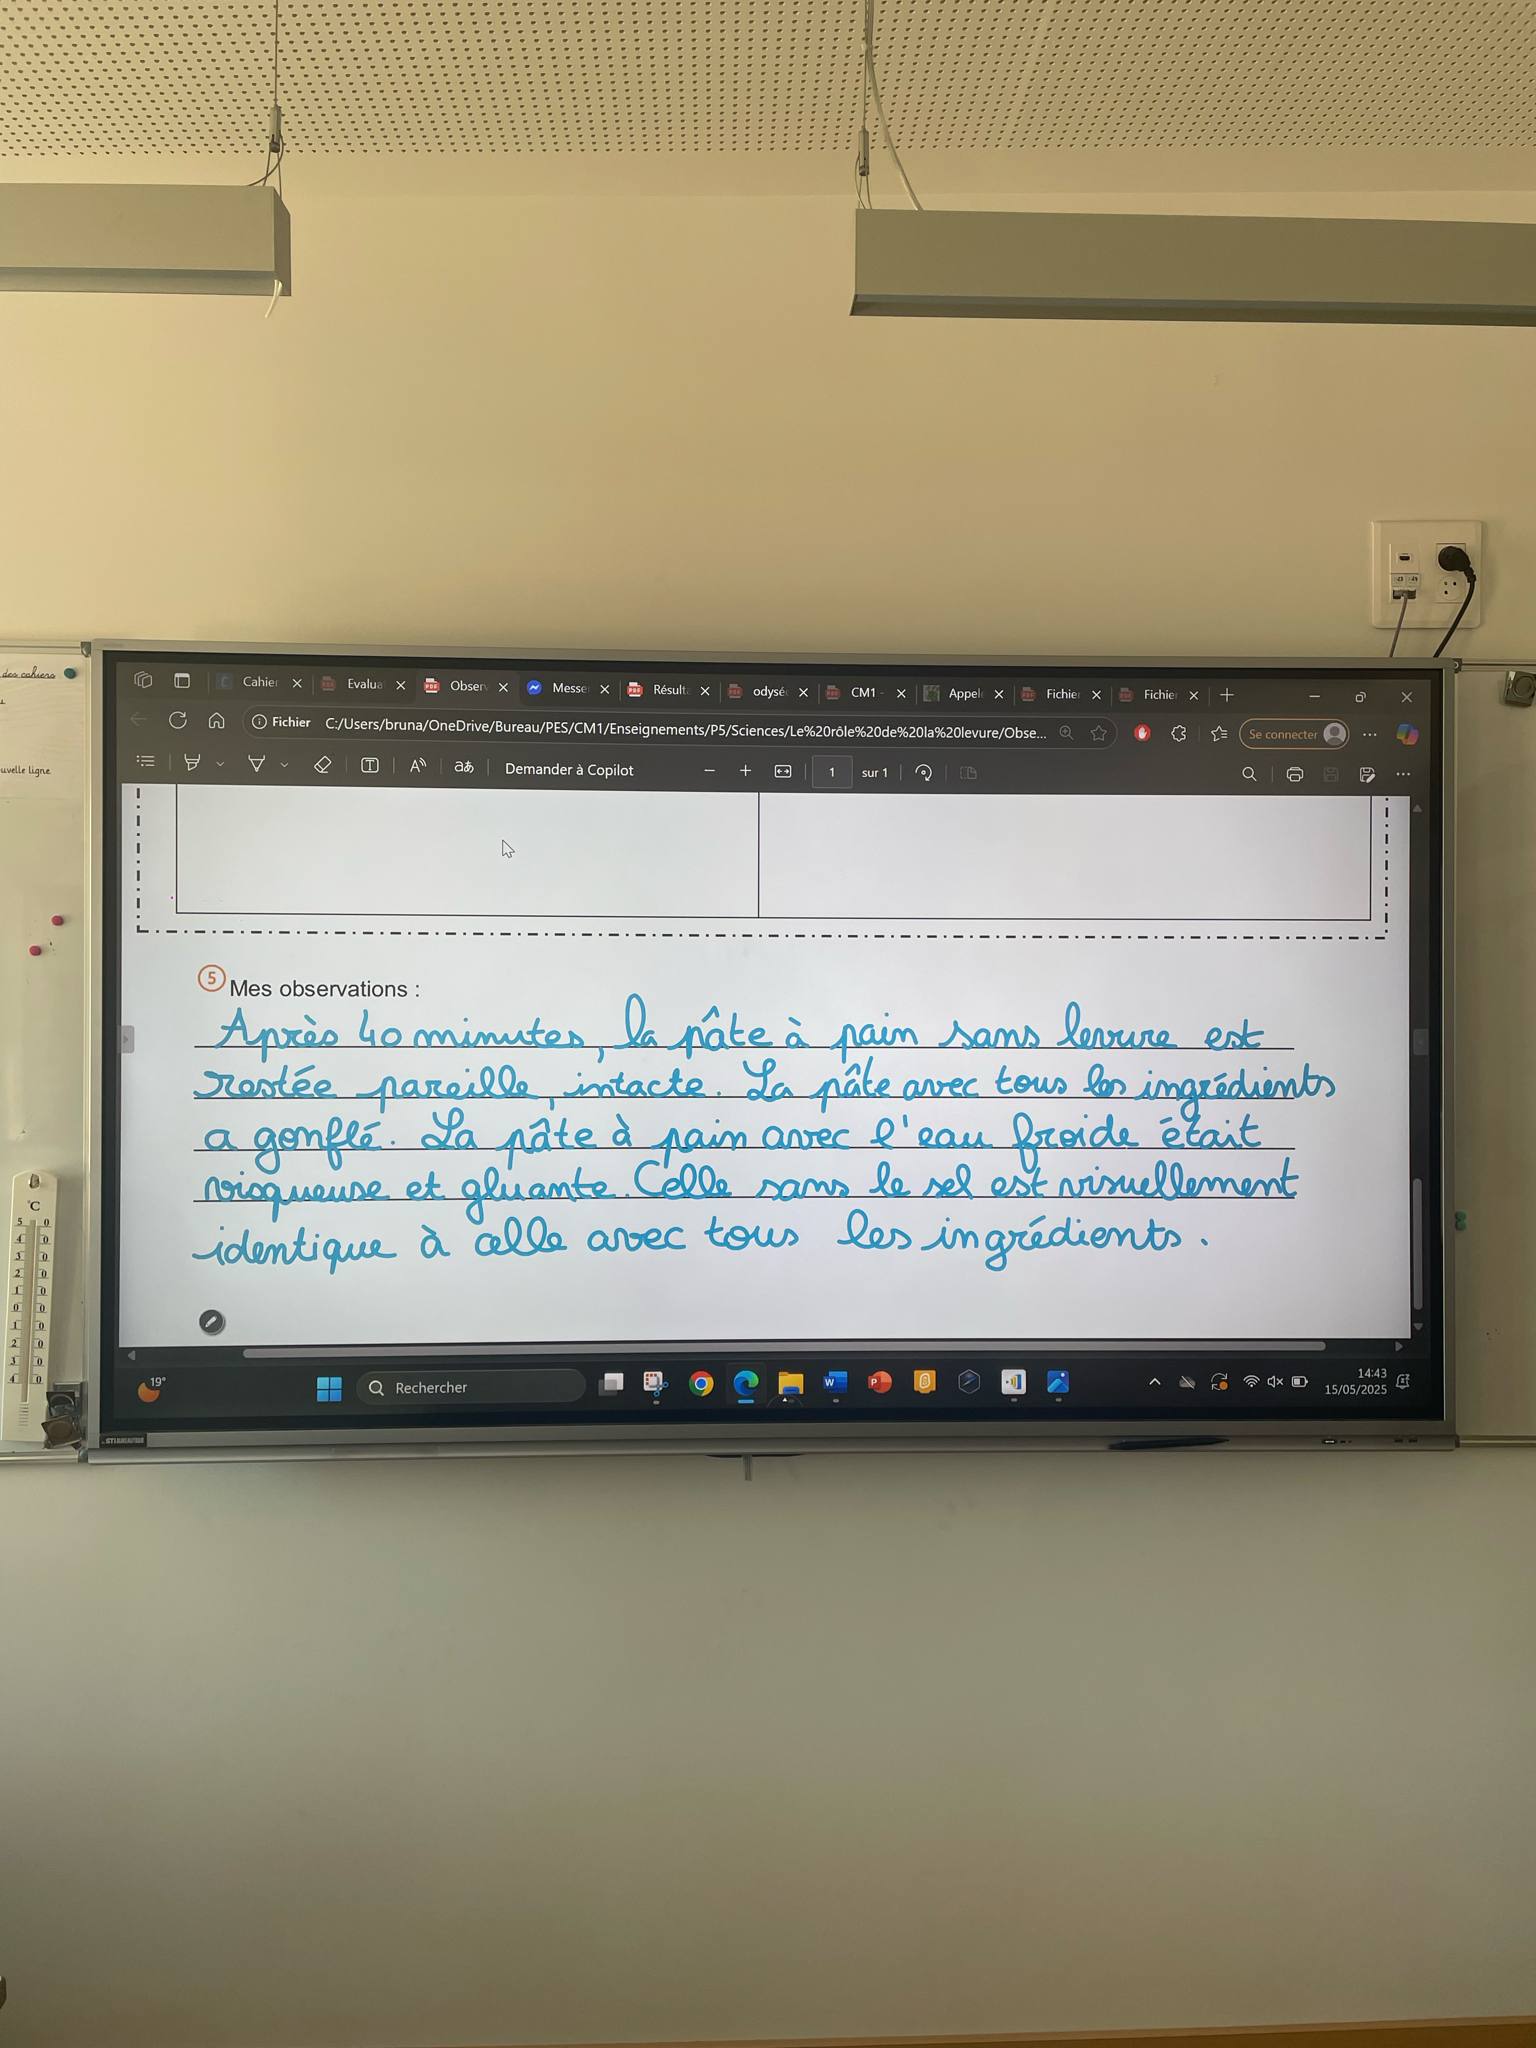 des cahiers
uvelle ligne
Cahier
Evalua
Obser
Messe
Résulta
odysé
CM1 -
Appel
Fichier
Fichier
Fichier C:/Users/bruna/OneDrive/Bureau/PES/CM1/Enseignements/P5/Sciences/Le%20rôle%20de%20la%20levure/Obse...
Se connecter
Demander à Copilot
1 sur 1
5 Mes observations :
Après 40 minutes, la pâte à pain sans levure est
restée pareille, intacte. La pâte avec tous les ingrédients
a gonflé. La pâte à pain avec l'eau froide était
visqueuse et gluante. Celle sans le sel est visuellement
identique à celle avec tous les ingrédients.
°C
5 0
4 0
3 0
2 0
1 0
0 0
1 0
2 0
3 0
4 0
19°
Rechercher
14:43
15/05/2025